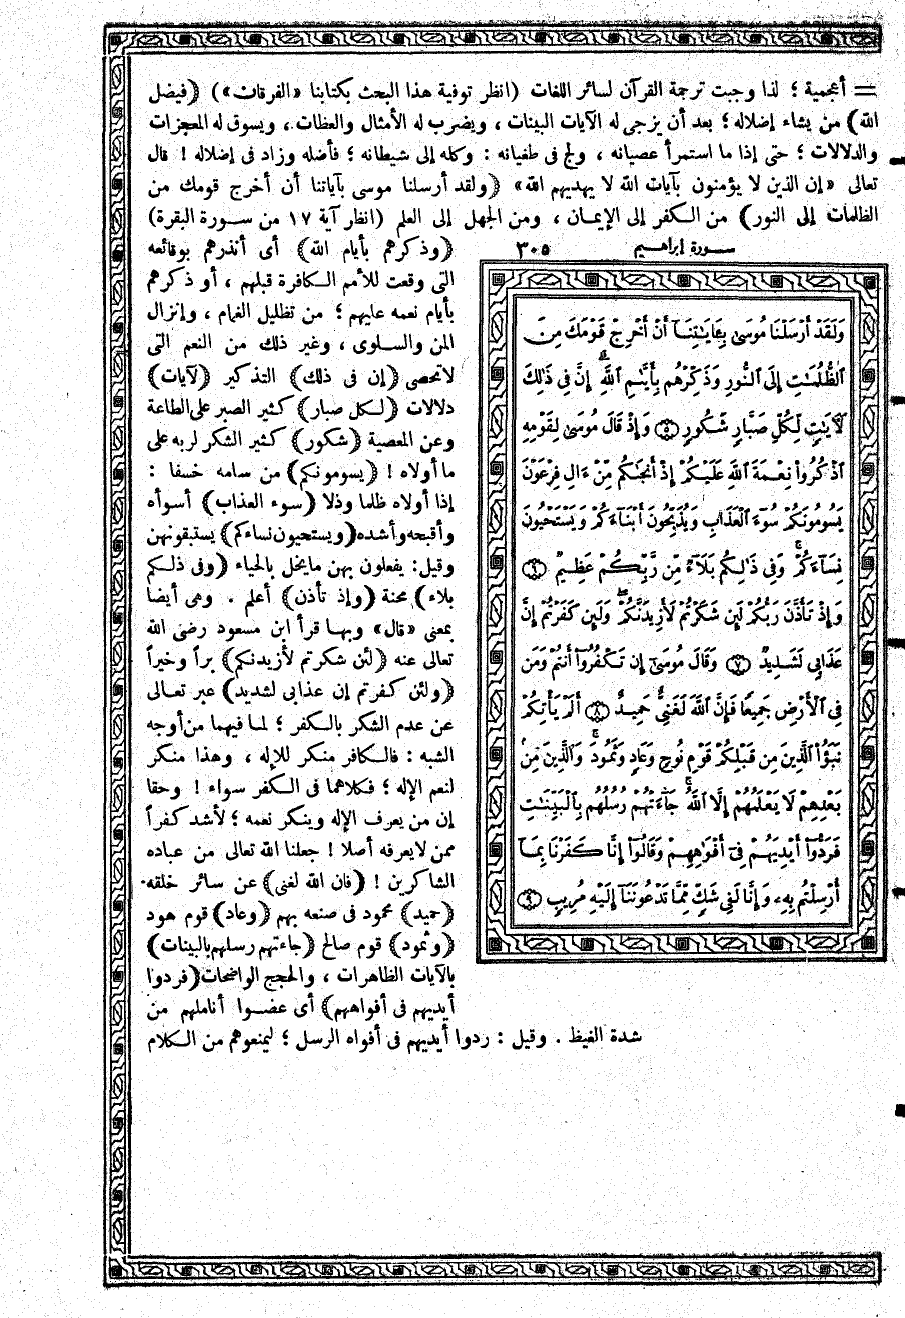 = أعجمية ؛ لذا وجبت ترجمة القرآن لسائر اللغات (انظر توفية هذا البحث بكتابنا «الفرقان») ﴿فيضل
الله﴾ من يشاء إضلاله ؛ بعد أن يزجى له الآيات البينات ، ويضرب له الأمثال والعظات ، ويسوق له المعجزات
والدلالات ؛ حتى إذا ما استمرأ عصيانه ، ولج فى طغيانه : وكله إلى شيطانه ؛ فأضله وزاد فى إضلاله ! قال
تعالى «إن الذين لا يؤمنون بآيات الله لا يهديهم الله» ﴿ولقد أرسلنا موسى بآياتنا أن أخرج قومك من
الظلمات إلى النور﴾ من الكفر إلى الإيمان ، ومن الجهل إلى العلم (انظر آية ١٧ من سورة البقرة)
سورة إبراهيم ٣٠٥
وَلَقَدْ أَرْسَلْنَا مُوسَىٰ بِـَٔايَـٰتِنَآ أَنْ أَخْرِجْ قَوْمَكَ مِنَ
ٱلظُّلُمَـٰتِ إِلَى ٱلنُّورِ وَذَكِّرْهُم بِأَيَّـٰمِ ٱللَّهِ ۚ إِنَّ فِى ذَٰلِكَ
لَأَيَـٰتٍ لِّكُلِّ صَبَّارٍ شَكُورٍ ٥ وَإِذْ قَالَ مُوسَىٰ لِقَوْمِهِ
ٱذْكُرُوا۟ نِعْمَةَ ٱللَّهِ عَلَيْكُمْ إِذْ أَنجَىٰكُم مِّنْ ءَالِ فِرْعَوْنَ
يَسُومُونَكُمْ سُوٓءَ ٱلْعَذَابِ وَيُذَبِّحُونَ أَبْنَآءَكُمْ وَيَسْتَحْيُونَ
نِسَآءَكُمْ ۚ وَفِى ذَٰلِكُم بَلَآءٌ مِّن رَّبِّكُمْ عَظِيمٌ ٦
وَإِذْ تَأَذَّنَ رَبُّكُمْ لَئِن شَكَرْتُمْ لَأَزِيدَنَّكُمْ ۖ وَلَئِن كَفَرْتُمْ إِنَّ
عَذَابِى لَشَدِيدٌ ٧ وَقَالَ مُوسَىٰٓ إِن تَكْفُرُوٓا۟ أَنتُمْ وَمَن
فِى ٱلْأَرْضِ جَمِيعًا فَإِنَّ ٱللَّهَ لَغَنِىٌّ حَمِيدٌ ٨ أَلَمْ يَأْتِكُمْ
نَبَؤُا۟ ٱلَّذِينَ مِن قَبْلِكُمْ قَوْمِ نُوحٍ وَعَادٍ وَثَمُودَ ۛ وَٱلَّذِينَ مِنۢ
بَعْدِهِمْ ۛ لَا يَعْلَمُهُمْ إِلَّا ٱللَّهُ ۚ جَآءَتْهُمْ رُسُلُهُم بِٱلْبَيِّنَـٰتِ
فَرَدُّوٓا۟ أَيْدِيَهُمْ فِىٓ أَفْوَٰهِهِمْ وَقَالُوٓا۟ إِنَّا كَفَرْنَا بِمَآ
أُرْسِلْتُم بِهِۦ وَإِنَّا لَفِى شَكٍّ مِّمَّا تَدْعُونَنَآ إِلَيْهِ مُرِيبٍ ٩
﴿وذكرهم بأيام الله﴾ أى أنذرهم بوقائعه
التى وقعت للأمم الكافرة قبلهم ، أو ذكرهم
بأيام نعمه عليهم ؛ من تظليل الغمام ، وإنزال
المن والسلوى ، وغير ذلك من النعم التى
لا تحصى ﴿إن فى ذلك﴾ التذكير ﴿لآيات﴾
دلالات ﴿لكل صبار﴾ كثير الصبر على الطاعة
وعن المعصية ﴿شكور﴾ كثير الشكر لربه على
ما أولاه ! ﴿يسومونكم﴾ من سامه خسفا :
إذا أولاه ظلما وذلا ﴿سوء العذاب﴾ أسوأه
وأقبحه وأشده ﴿ويستحيون نساءكم﴾ يستبقونهن
وقيل: يفعلون بهن ما يخل بالحياء ﴿وفى ذلكم
بلاء﴾ محنة ﴿وإذ تأذن﴾ أعلم . وهى أيضا
بمعنى «قال» وبها قرأ ابن مسعود رضى الله
تعالى عنه ﴿لئن شكرتم لأزيدنكم﴾ براً وخيراً
﴿ولئن كفرتم إن عذابى لشديد﴾ عبر تعالى
عن عدم الشكر بالكفر ؛ لما فيهما من أوجه
الشبه : فالكافر منكر للإله ، وهذا منكر
لنعم الإله ؛ فكلاهما فى الكفر سواء ! وحقا
إن من يعرف الإله وينكر نعمه ؛ لأشد كفراً
ممن لا يعرفه أصلا ! جعلنا الله تعالى من عباده
الشاكرين ! ﴿فان الله لغنى﴾ عن سائر خلقه
﴿حميد﴾ محمود فى صنعه بهم ﴿وعاد﴾ قوم هود
﴿وثمود﴾ قوم صالح ﴿جاءتهم رسلهم بالبينات﴾
بالآيات الظاهرات ، والحجج الواضحات ﴿فردوا
أيديهم فى أفواههم﴾ أى عضوا أناملهم من
شدة الغيظ . وقيل : ردوا أيديهم فى أفواه الرسل ؛ ليمنعوهم من الكلام